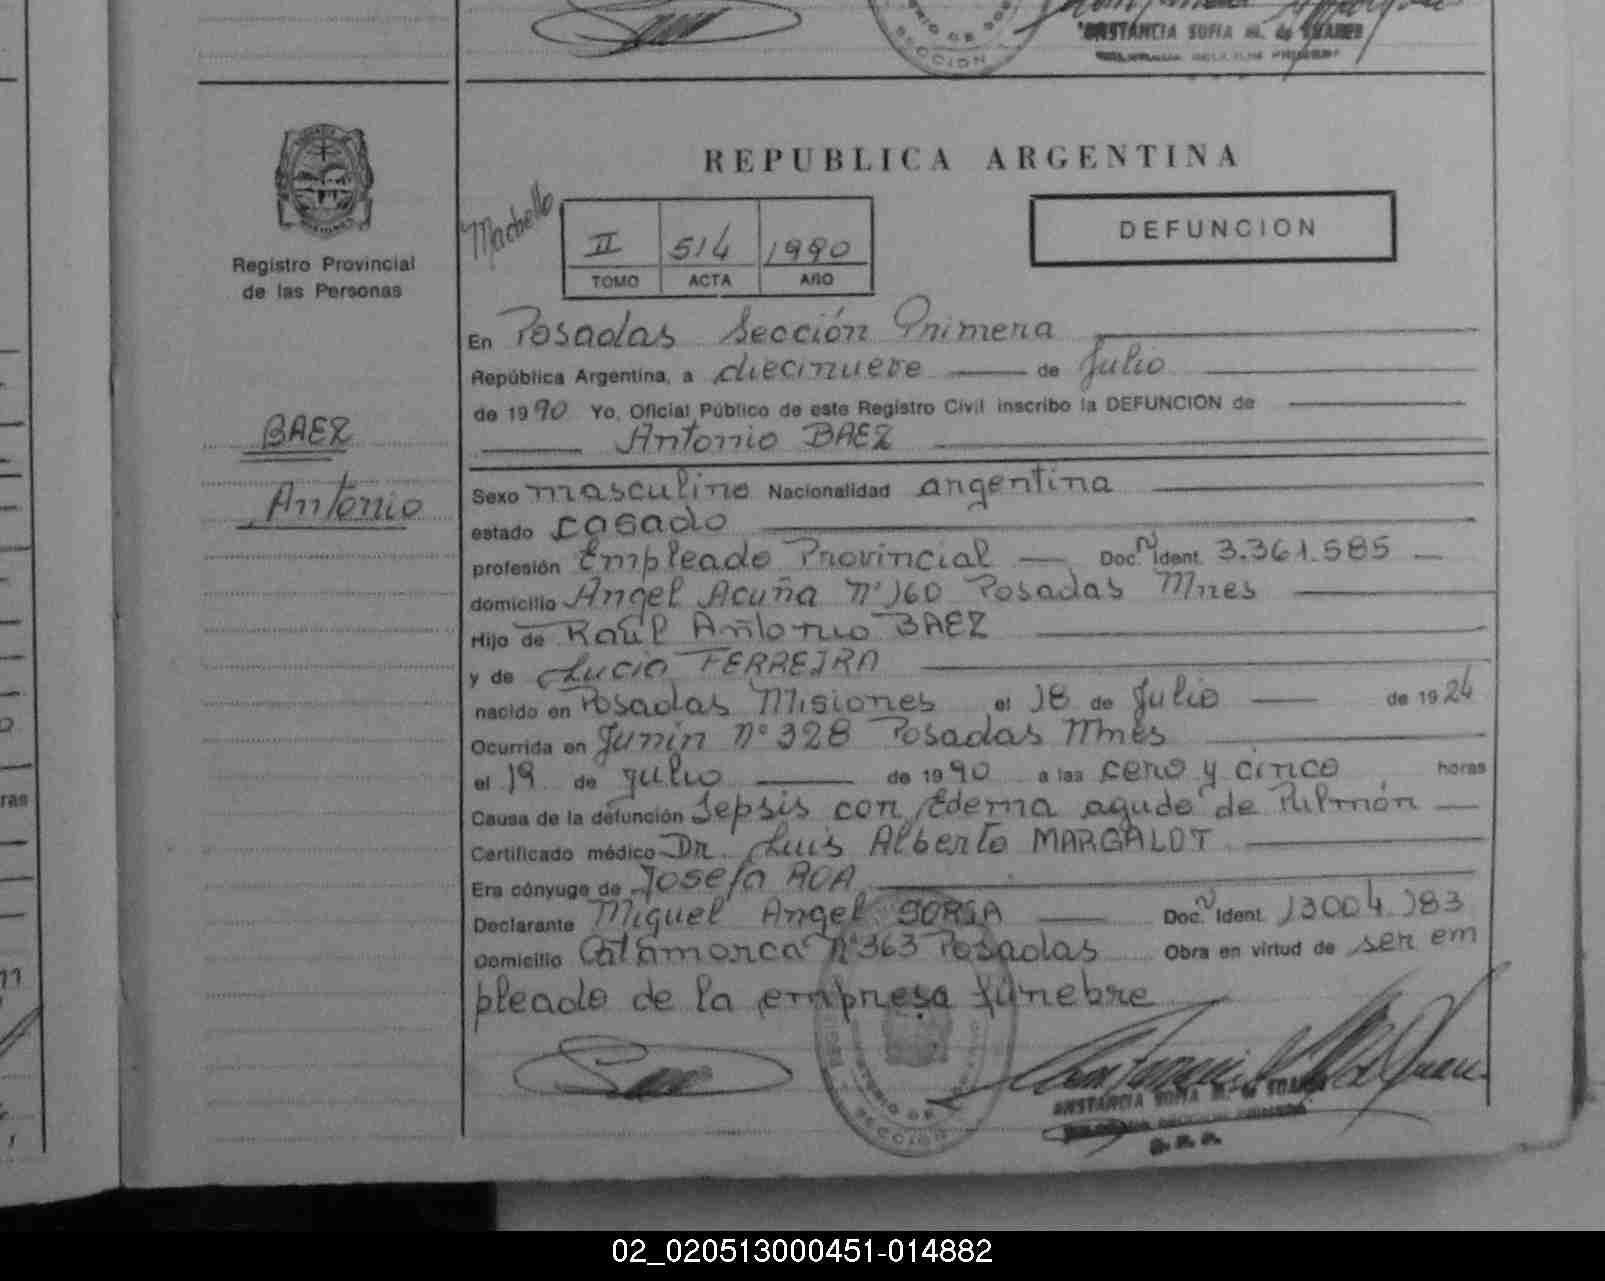 CONSTANCIA SOFIA M. de
SECCION
REPUBLICA ARGENTINA
Machello
II 514 1990
TOMO ACTA AÑO
DEFUNCION
Registro Provincial
de las Personas
BAEZ
Antonio
En Posadas Sección Primera
República Argentina, a diecinueve de Julio
de 1990 Yo, Oficial Público de este Registro Civil inscribo la DEFUNCION de
Antonio BAEZ
Sexo masculino Nacionalidad argentina
estado casado
profesión Empleado Provincial Doc. N Ident. 3.361.585
domicilio Angel Acuña Nº 160 Posadas Mnes
Hijo de Raúl Antonio BAEZ
y de Lucia FERREIRA
nacido en Posadas Misiones el 18 de Julio de 1924
Ocurrida en Junin Nº 328 Posadas Mnes
el 19 de julio de 1990 a las cero y cinco horas
Causa de la defunción Sepsis con Edema agudo de Pulmón
Certificado médico Dr. Luis Alberto MARGALOT
Era cónyuge de Josefa ROA
Declarante Miguel Angel BORGA Doc. N Ident. 13004.183
Domicilio Catamarca Nº 363 Posadas Obra en virtud de ser em
pleado de la empresa fúnebre
SECCION
CONSTANCIA SOFIA M. de
02_020513000451-014882